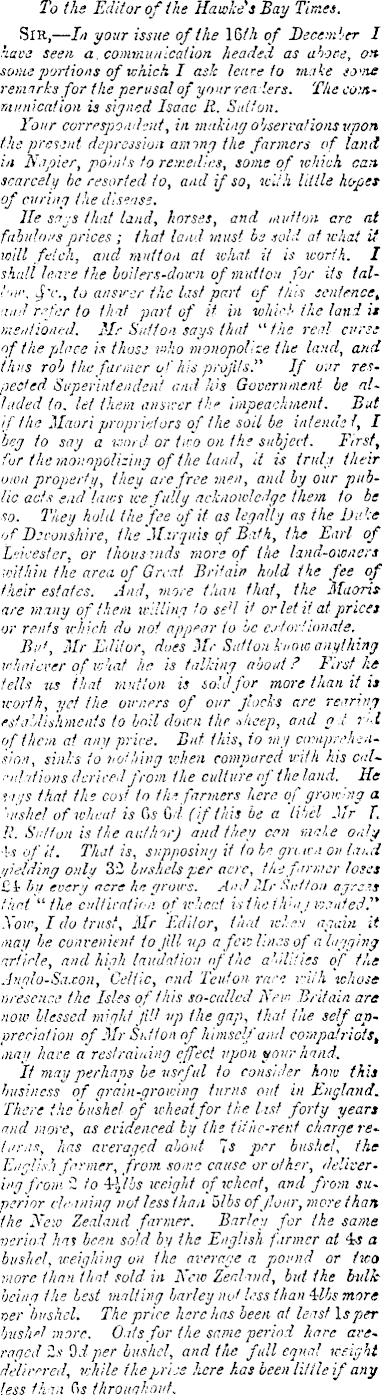 To the Editor of the Hawke's Bay Times.
SIR,—In your issue of the 16th of December I
have seen a communication headed as above, on
some portions of which I ask leave to make some
remarks for the perusal of your readers. The com-
munication is signed Isaac R. Sutton.
Your correspondent, in making observations upon
the present depression among the farmers of land
in Napier, points to remedies, some of which can
scarcely be resorted to, and if so, with little hopes
of curing the disease.
He says that land, horses, and mutton are at
fabulous prices ; that land must be sold at what it
will fetch, and mutton at what it is worth. I
shall leave the boilers-down of mutton for its tal-
low, &c., to answer the last part of this sentence,
and refer to that part of it in which the land is
mentioned. Mr Sutton says that "the real curse
of the place is those who monopolize the land, and
thus rob the farmer of his profits." If our res-
pected Superintendent and his Government be al-
luded to, let them answer the impeachment. But
if the Maori proprietors of the soil be intended, I
beg to say a word or two on the subject. First,
for the monopolizing of the land, it is truly their
own property, they are free men, and by our pub-
lic acts and laws we fully acknowledge them to be
so. They hold the fee of it as legally as the Duke
of Devonshire, the Marquis of Bath, the Earl of
Leicester, or thousands more of the land-owners
within the area of Great Britain hold the fee of
their estates. And, more than that, the Maoris
are many of them willing to sell it or let it at prices
or rents which do not appear to be extortionate.
But, Mr Editor, does Mr Sutton know anything
whatever of what he is talking about? First he
tells us that mutton is sold for more than it is
worth, yet the owners of our flocks are rearing
establishments to boil down the sheep, and get rid
of them at any price. But this, to my comprehen-
sion, sinks to nothing when compared with his cal-
culations derived from the culture of the land. He
says that the cost to the farmers here of growing a
bushel of wheat is 6s 6d (if this be a libel Mr I.
R. Sutton is the author) and they can make only
4s of it. That is, supposing it to be grown on land
yielding only 32 bushels per acre, the farmer loses
£4 by every acre he grows. And Mr Sutton agrees
that "the cultivation of wheat is the thing wanted."
Now, I do trust, Mr Editor, that when again it
may be convenient to fill up a few lines of a lagging
article, and high laudation of the abilities of the
Anglo-Saxon, Celtic, and Teuton race with whose
presence the Isles of this so-called New Britain are
now blessed might fill up the gap, that the self ap-
preciation of Mr Sutton of himself and compatriots,
may have a restraining effect upon your hand.
It may perhaps be useful to consider how this
business of grain-growing turns out in England.
There the bushel of wheat for the last forty years
and more, as evidenced by the tithe-rent charge re-
turns, has averaged about 7s per bushel, the
English farmer, from some cause or other, deliver-
ing from 2 to 4½lbs weight of wheat, and from su-
perior cleaning not less than 5lbs of flour, more than
the New Zealand farmer. Barley for the same
period has been sold by the English farmer at 4s a
bushel, weighing on the average a pound or two
more than that sold in New Zealand, but the bulk
being the best malting barley not less than 4lbs more
per bushel. The price here has been at least 1s per
bushel more. Oats for the same period have ave-
raged 2s 9d per bushel, and the full equal weight
delivered, while the price here has been little if any
less than 6s throughout.